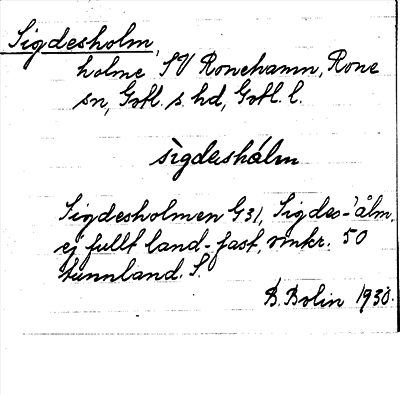 Sigdesholm,
holme SV Ronehamn, Rone
sn, Gotl. s. hd, Gotl. l.
sìgdeshálm
Sigdesholmen G 31, Sigdes-'ålm,
ej fullt land-fast, omkr. 50
tunnland. S.
B. Bolin 1930.